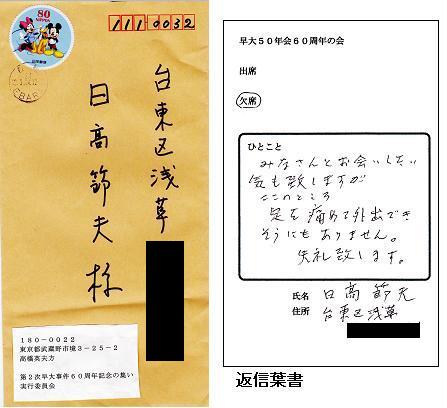 80
NIPPON
1110032
台東区浅草
日高節夫様
180-0022
東京都武蔵野市境3-25-2
高橋英夫方
第2次早大事件60周年記念の集い
実行委員会
早大50年会60周年の会
出席
欠席
ひとこと
みなさんとお会いしたい
気も致しますが
このところ
足を痛めて外出でき
そうにもありません。
失礼致します。
氏名 日高節夫
住所 台東区浅草
返信葉書